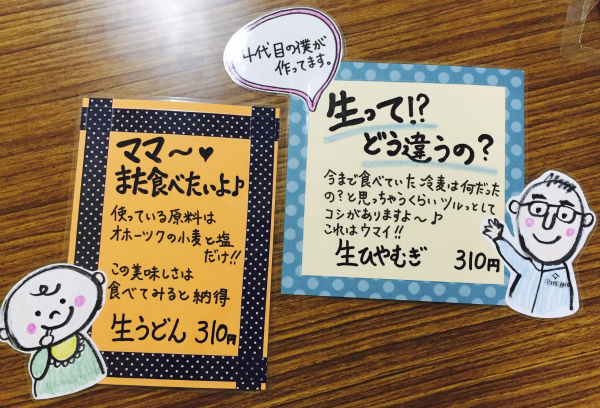 4代目の僕が
作ってます。
ママ～♥
また食べたいよ♪
使っている原料は
オホーツクの小麦と塩
だけ!!
この美味しさは
食べてみると納得
生うどん 310円
生って!?
どう違うの?
今まで食べていた冷麦は何だった
の?と思っちゃうくらいツルっとして
コシがありますよ～♪
これはウマイ!!
生ひやむぎ 310円